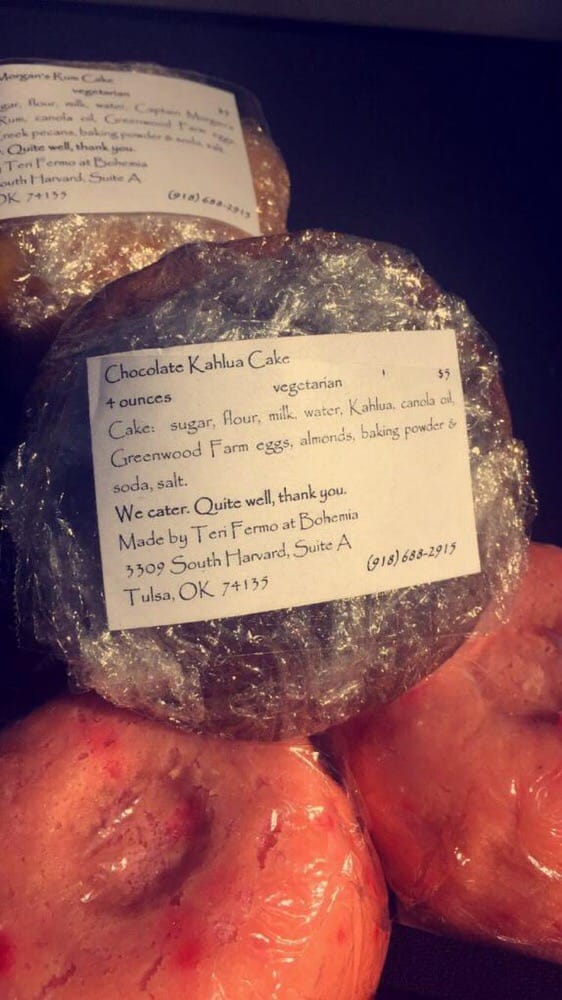 Morgan's Rum Cake
vegetarian $5
gar, flour, milk, water, Captain Morgan's
Rum, canola oil, Greenwood Farm eggs,
reek pecans, baking powder & soda, salt.
. Quite well, thank you.
Teri Fermo at Bohemia
outh Harvard, Suite A
OK 74135 (918) 688-2915
Chocolate Kahlua Cake
4 ounces vegetarian $5
Cake: sugar, flour, milk, water, Kahlua, canola oil,
Greenwood Farm eggs, almonds, baking powder &
soda, salt.
We cater. Quite well, thank you.
Made by Teri Fermo at Bohemia
3309 South Harvard, Suite A
Tulsa, OK 74135 (918) 688-2915